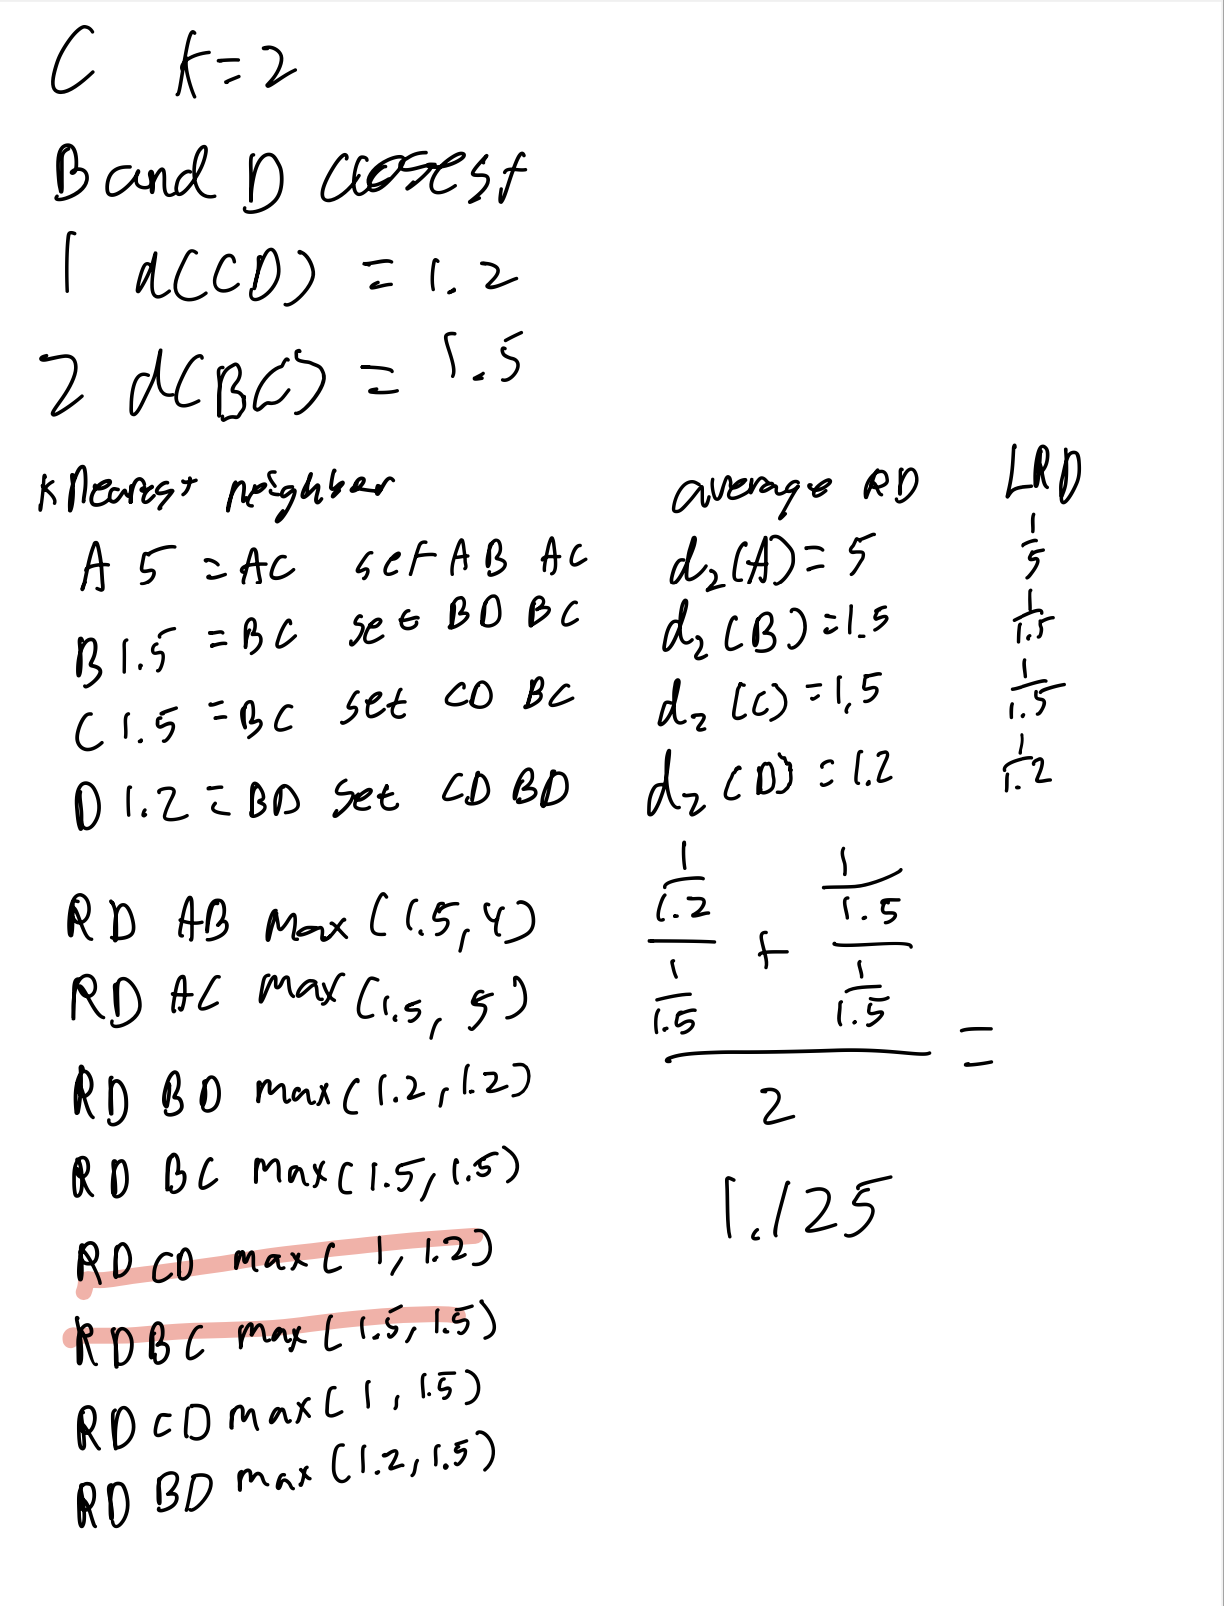 C K=2
B and D closest
1 d(CD) = 1.2
2 d(BC) = 1.5
K Nearest neighber
A 5 = AC set AB AC
B 1.5 = BC set BD BC
C 1.5 = BC set CD BC
D 1.2 = BD set CD BD
RD AB max (1.5, 4)
RD AC max (1.5, 5)
RD BD max (1.2, 1.2)
RD BC max (1.5, 1.5)
RD CD max ( 1, 1.2)
RD BC max (1.5, 1.5)
RD CD max ( 1, 1.5)
RD BD max (1.2, 1.5)
average RD LRD
d₂(A) = 5 1/5
d₂(B) = 1.5 1/1.5
d₂(C) = 1,5 1/1.5
d₂(D) = 1.2 1/1.2
((1/1.2)/(1/1.5) + (1/1.5)/(1/1.5))/2 =
1.125